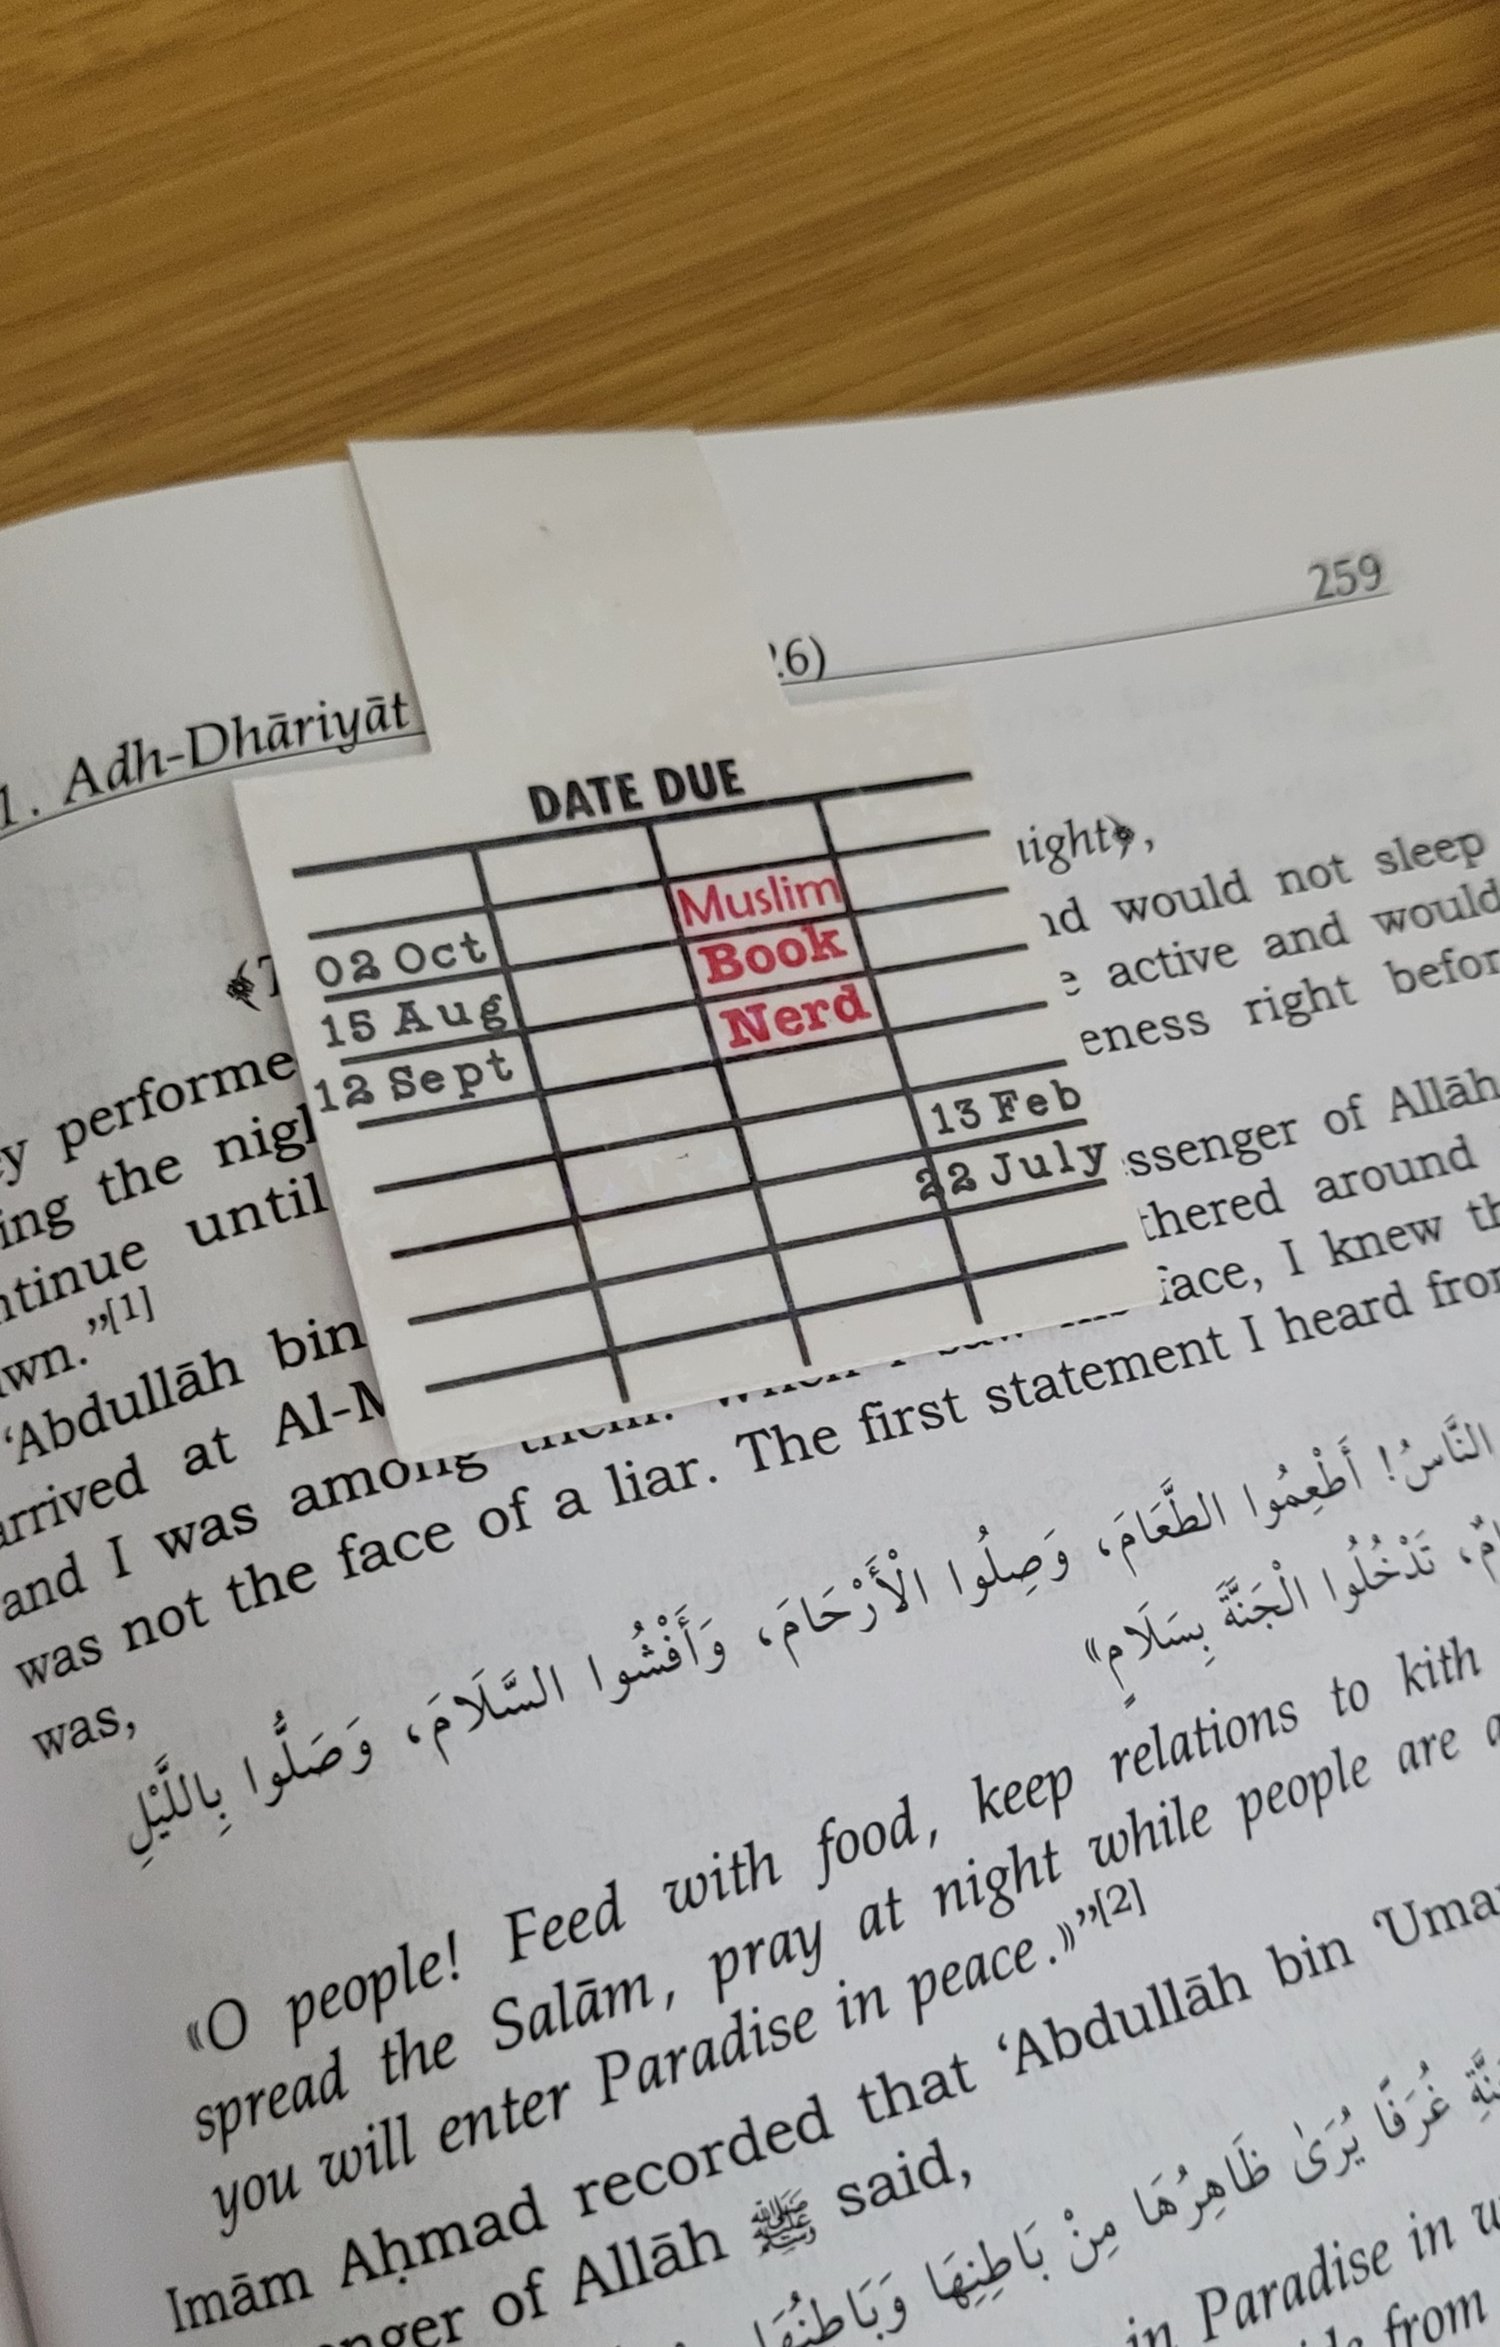 259
1. Adh-Dhāriyāt
26)
DATE DUE
Muslim
02 Oct Book
15 Aug Nerd
12 Sept
13 Feb
22 July
would not sleep
active and would
right
performe
ing the
until of Allāh
around
[1] face, I knew
‘Abdullāh bin
at
and I was among
was not the face of a liar. The first statement I heard
was,
النَّاسُ! أَطْعِمُوا الطَّعَامَ، وَصِلُوا الْأَرْحَامَ، وَأَفْشُوا السَّلَامَ، وَصَلُّوا بِاللَّيْلِ
تَدْخُلُوا الْجَنَّةَ بِسَلَامٍ»
«O people! Feed with food, keep relations to kith
spread the Salām, pray at night while people are
you will enter Paradise in peace.»”[2]
Imām Aḥmad recorded that ‘Abdullāh bin
of Allāh ﷺ said,
غُرَفًا يُرَىٰ ظَاهِرُهَا مِنْ بَاطِنِهَا
in Paradise in
from